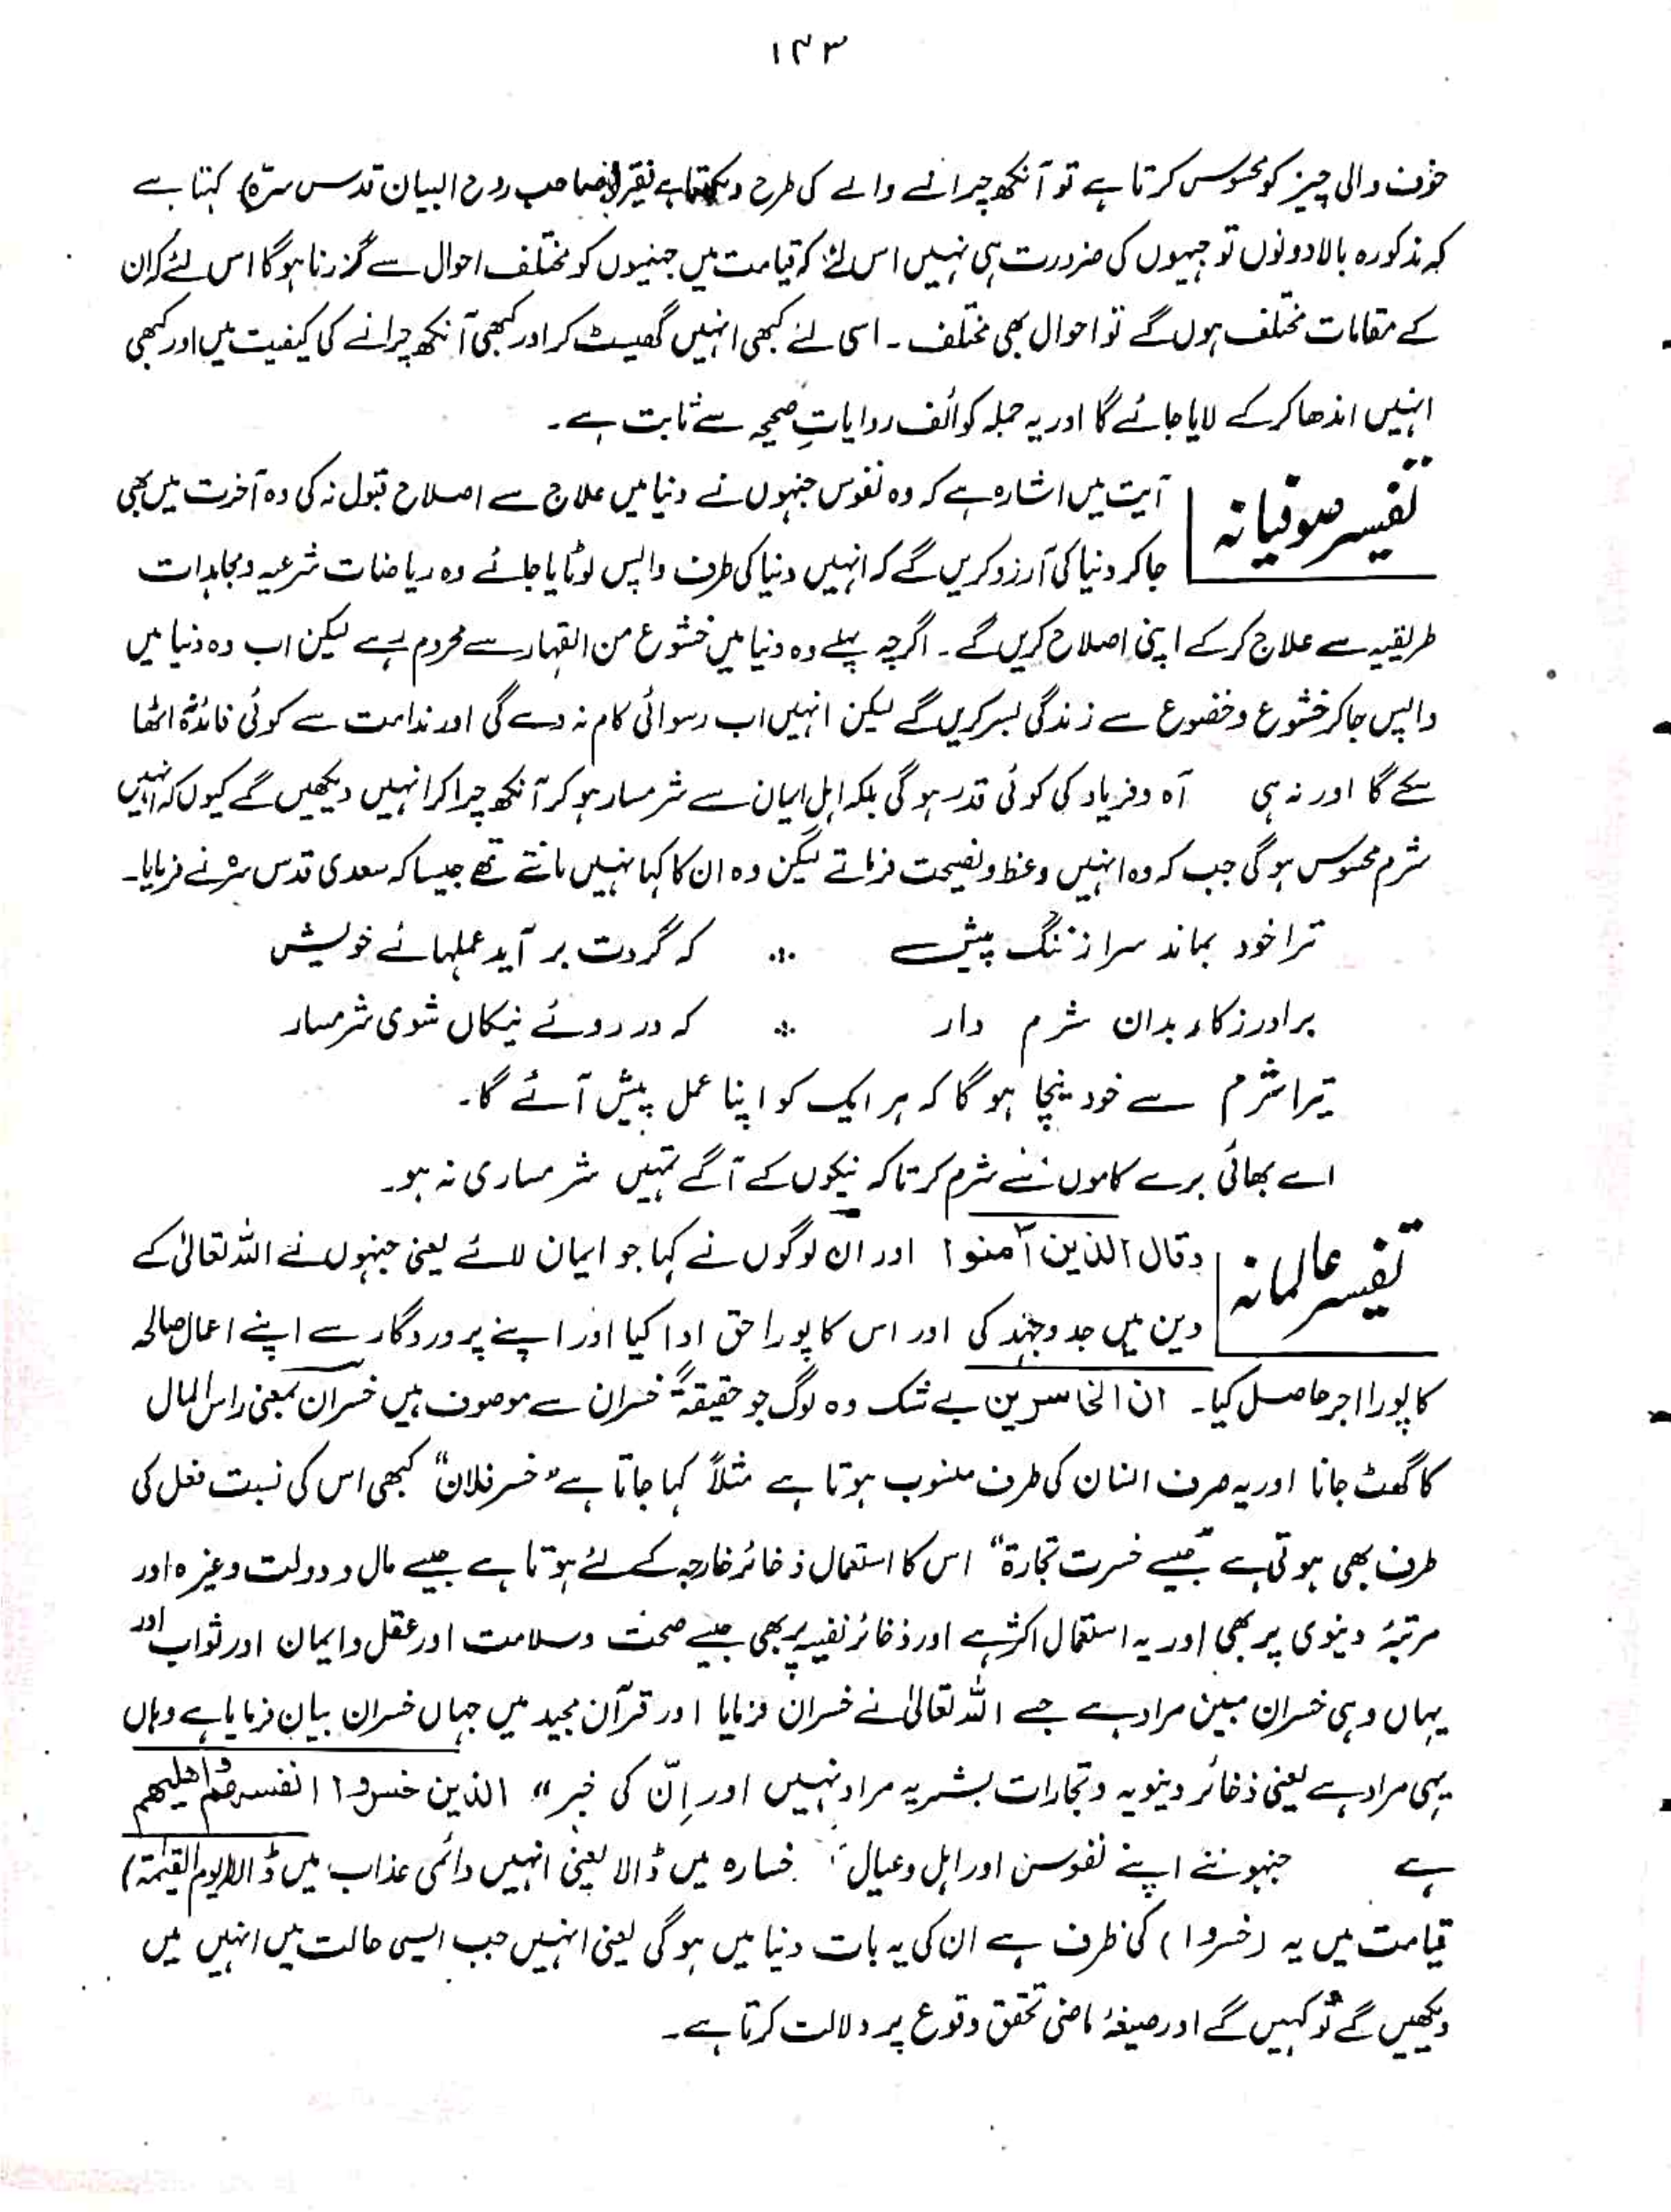 ۱۴۳
خوف والی چیز کو محسوس کرتا ہے تو آنکھ چرانے والے کی طرح دیکھتا ہے فقیر (صاحب روح البیان قدس سرہ) کہتا ہے
کہ مذکورہ بالا دونوں توجیہوں کی ضرورت ہی نہیں اس لئے کہ قیامت میں جہنمیوں کو مختلف احوال سے گزرنا ہوگا اس لئے کہ ان
کے مقامات مختلف ہوں گے تو احوال بھی مختلف ۔ اسی لئے کبھی انہیں گھسیٹ کر اور کبھی آنکھ چرانے کی کیفیت میں اور کبھی
انہیں اندھا کر کے لایا جائے گا اور یہ جملہ کوائف روایاتِ صحیحہ سے ثابت ہے ۔
تفسیر صوفیانہ
آیت میں اشارہ ہے کہ وہ نفوس جنہوں نے دنیا میں علاج سے اصلاح قبول نہ کی وہ آخرت میں بھی
جا کر دنیا کی آرزو کریں گے کہ انہیں دنیا کی طرف واپس لوٹایا جائے وہ ریاضات شرعیہ و مجاہدات
طریقیہ سے علاج کر کے اپنی اصلاح کریں گے ۔ اگرچہ پہلے وہ دنیا میں خشوع من القہار سے محروم رہے لیکن اب وہ دنیا میں
واپس جا کر خشوع و خضوع سے زندگی بسر کریں گے لیکن انہیں اب رسوائی کام نہ دے گی اور ندامت سے کوئی فائدہ اٹھا
سکے گا اور نہ ہی آہ و فریاد کی کوئی قدر ہو گی بلکہ اہل ایمان سے شرمسار ہو کر آنکھ چرا کر انہیں دیکھیں گے کیوں کہ انہیں
شرم محسوس ہو گی جب کہ وہ انہیں وعظ و نصیحت فرماتے لیکن وہ ان کا کہا نہیں مانتے تھے جیسا کہ سعدی قدس سرہ نے فرمایا۔
ترا خود بماند سر از ننگ پیش ∴ کہ گردت بر آید عملہائے خویش
برادر زکار بدان شرم دار ∴ کہ در روئے نیکاں شوی شرمسار
تیرا شرم سے خود نیچا ہو گا کہ ہر ایک کو اپنا عمل پیش آئے گا۔
اے بھائی برے کاموں سے شرم کر تاکہ نیکوں کے آگے تمہیں شرمساری نہ ہو۔
تفسیر عالمانہ
وقال الذین آمنوا اور ان لوگوں نے کہا جو ایمان لائے یعنی جنہوں نے اللہ تعالیٰ کے
دین میں جد و جہد کی اور اس کا پورا حق ادا کیا اور اپنے پروردگار سے اپنے اعمال صالحہ
کا پورا اجر حاصل کیا۔ ان الخاسرین بے شک وہ لوگ جو حقیقۃً خسران سے موصوف ہیں خسران بمعنی راس المال
کا گھٹ جانا اور یہ صرف انسان کی طرف منسوب ہوتا ہے مثلاً کہا جاتا ہے "خسر فلان" کبھی اس کی نسبت فعل کی
طرف بھی ہوتی ہے جیسے خسرت تجارۃ" اس کا استعمال ذخائر خارجہ کے لئے ہوتا ہے جیسے مال و دولت وغیرہ اور
مرتبۂ دنیوی پر بھی اور یہ استعمال اکثر ہے اور ذخائر نفسیہ پر بھی جیسے صحت و سلامت اور عقل و ایمان اور ثواب اور
یہاں وہی خسران مبین مراد ہے جسے اللہ تعالیٰ نے خسران فرمایا اور قرآن مجید میں جہاں خسران بیان فرمایا ہے وہاں
یہی مراد ہے یعنی ذخائر دنیویہ و تجارات بشریہ مراد نہیں اور اِنّ کی خبر " الذین خسروا انفسهم واهلیهم
ہے جنہوں نے اپنے نفوس اور اہل و عیال خسارہ میں ڈالا یعنی انہیں دائمی عذاب میں ڈالا (یوم القیٰمة)
قیامت میں یہ (خسروا) کی ظرف ہے ان کی یہ بات دنیا میں ہو گی یعنی انہیں جب ایسی حالت میں انہیں میں
دیکھیں گے تو کہیں گے اور صیغۂ ماضی تحقق وقوع پر دلالت کرتا ہے ۔